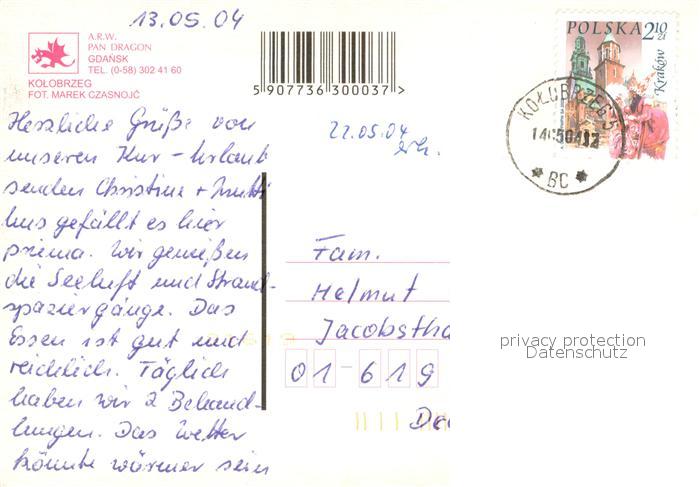 13.05.04
A.R.W.
PAN DRAGON
GDAŃSK
TEL. (0-58) 302 41 60
KOŁOBRZEG
FOT. MAREK CZASNOJĆ
5 907736 300037 >
POLSKA 2 10 zł
Kraków
KOŁOBRZEG 3
BC
22.05.04
Herzliche Grüße von
unseren Kur-Urlaub
senden Christine + Mutti
Uns gefällt es hier
prima. Wir genießen
die Seeluft und Strand-
spaziergänge. Das
Essen ist gut und
reichlich. Täglich
haben wir 2 Behand-
lungen. Das Wetter
könnte wärmer sein
Fam.
Helmut
Jacobstha
01-619
privacy protection
Datenschutz